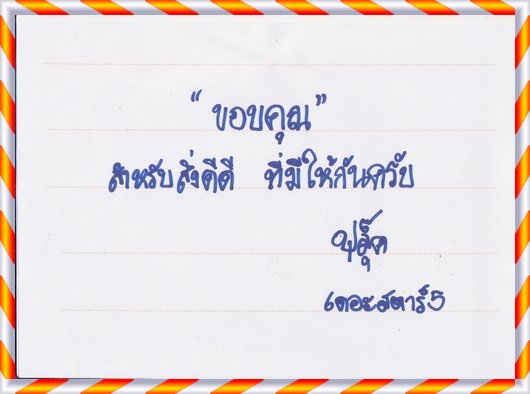 "ขอบคุณ"
สำหรับสิ่งดีดี ที่มีให้กันครับ
ฟลุ๊ค
เดอะสตาร์5